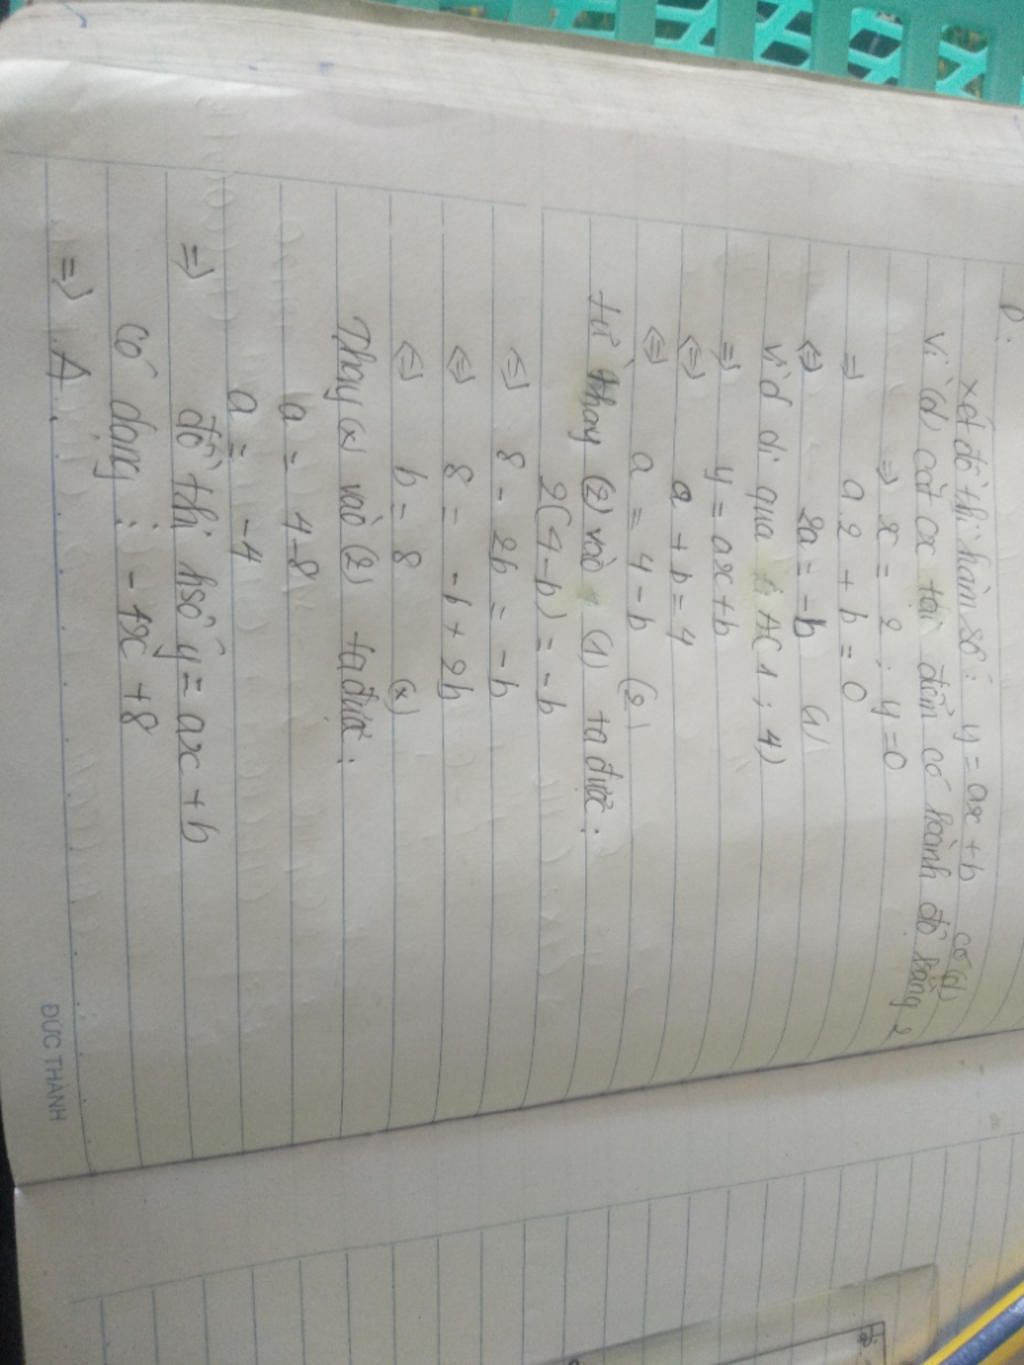 xét đồ thị hàm số: y = ax + b có (d)
Vì (d) cắt ox tại điểm có hoành độ bằng 2
=> x = 2 ; y = 0
=> a.2 + b = 0
<=> 2a = -b (1)
Vì d đi qua A(1 ; 4)
=> y = ax + b
<=> a + b = 4
<=> a = 4 - b (2)
từ thay (2) vào (1) ta được :
2(4 - b) = -b
<=> 8 - 2b = -b
<=> 8 = -b + 2b
<=> b = 8 (x)
Thay (x) vào (2) ta được :
a = 4 - 8
a = -4
=> đồ thị hsố y = ax + b
có dạng : -4x + 8
=> A.
ĐỨC THÀNH